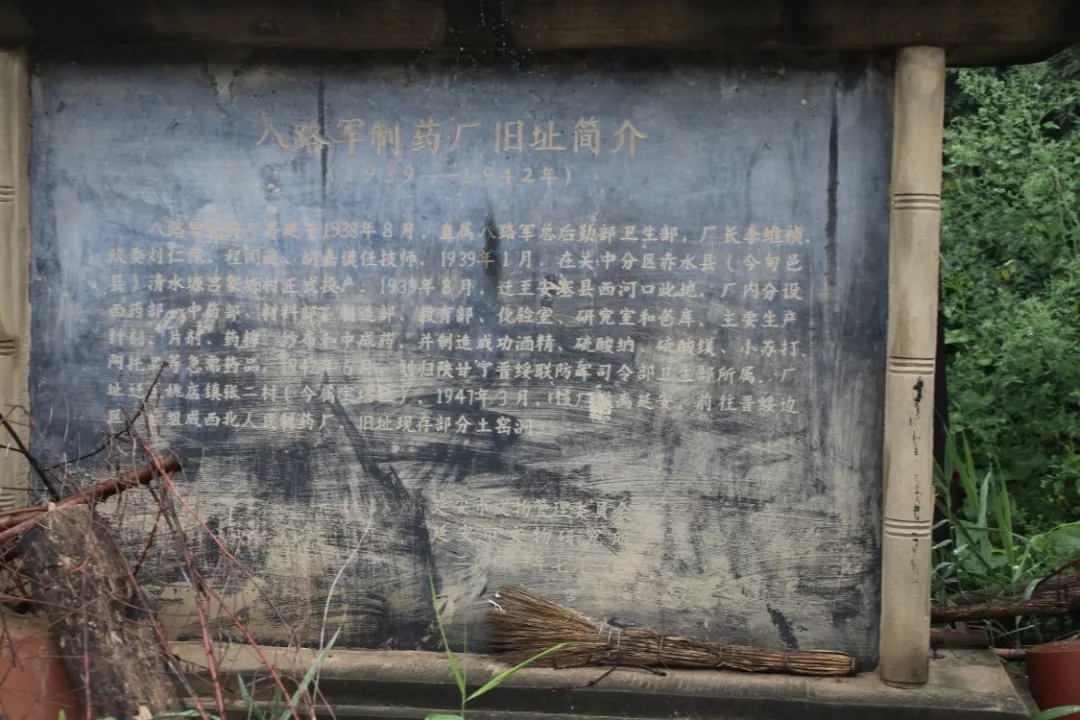 八路军制药厂旧址简介
（1939——1942年）
八路军制药厂筹建于1938年8月，直属八路军总后勤部卫生部，厂长李维祯，
政委刘仁 、程 任技师，1939年1月，在关中分区赤水县（今旬邑
县）清水塬吕家 村正式投产，1939年8月 迁至安塞县西河口此地，厂内分设
西药部、中药部、材料部、制造部、教育部、化验室、研究室和仓库，主要生产
针剂、片剂、药棉、纱布和中成药，并制造成功酒精、硫酸钠、硫酸镁、小苏打、
阿托品等急需药品，1942年6月， 归陕甘宁晋绥联防军司令部卫生部所属，厂
址迁 姚店镇张二村（今属宝塔区），1947年3月，该厂 离延安，前往晋绥边
区 组成西北人民制药厂，旧址现存部分土窑洞。
延安市文物管理委员会
延安市文物研究
年七月